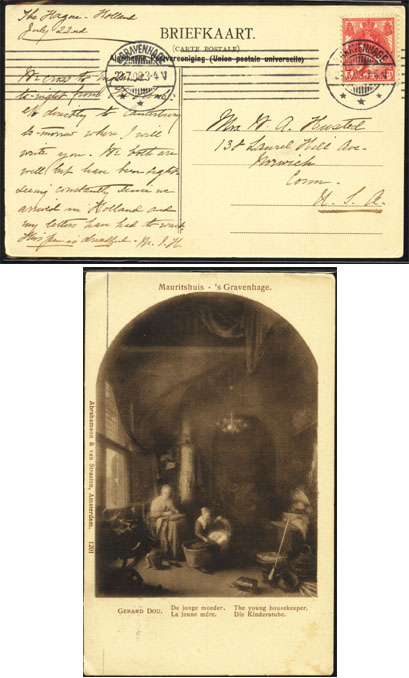 The Hague - Holland
July 22nd
BRIEFKAART.
(CARTE POSTALE)
Algemeene Postvereeniging (Union postale universelle)
'S GRAVENHAGE
'S GRAVENHAGE
We cross to
to-night from
off directly to Canterbury
to-morrow where I will
write you. We both are
well but have been sight-
seeing constantly since we
arrived in Holland and
my letters have had to wait
This pen is dreadful. M. J. H.
Mrs W. A. Husted
138 Laurel Hill Ave-
Norwich
Conn.
U. S. A.
Mauritshuis - 's Gravenhage.
Abrahamson & van Straaten, Amsterdam. 1201
GERARD DOU. De jonge moeder. The young housekeeper.
La jeune mère. Die Kinderstube.